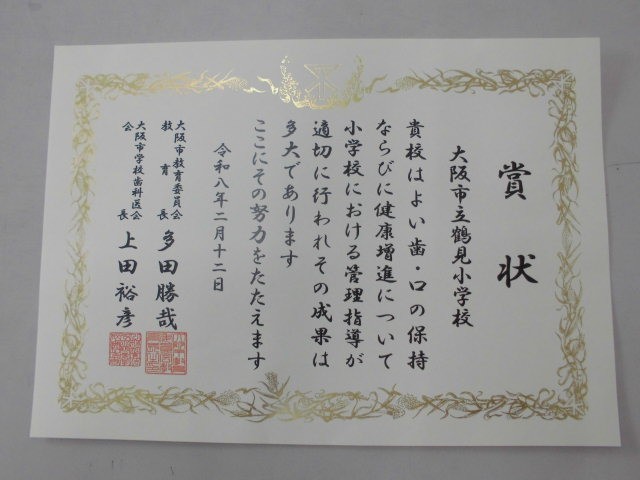 賞状
大阪市立鶴見小学校
貴校はよい歯・口の保持
ならびに健康増進について
小学校における管理指導が
適切に行われその成果は
多大であります
ここにその努力をたたえます
令和八年二月十二日
大阪市教育委員会
教育長 多田勝哉
大阪市学校歯科医会
会長 上田裕彦